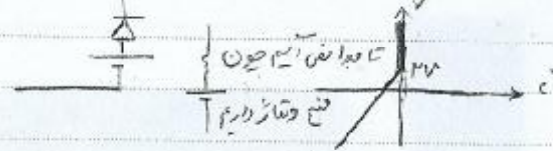 تا مبدا نمی آییم چون
منبع ولتاژ داریم
۲۷
i